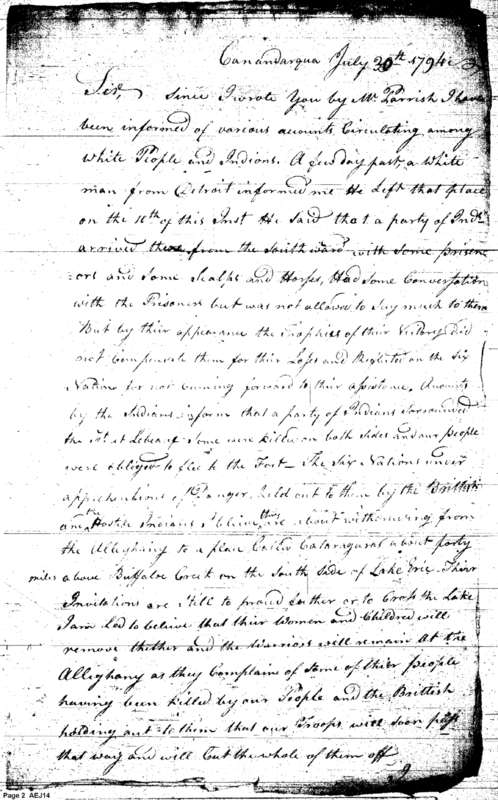 Canandarqua July 30th 1794
Sir, Since I wrote You by Mr. Parrish I have
been informed of various accounts Circulating among
White People and Indians. A few day past, a White
man from Detroit informed me He Left that place
on the 16th of this Inst He Said that a party of Inds
arrived there from the Southward with Some prisen
=ors and Some Scalps and Horses, Had Some Conversation
with the Prisoners but was not allowed to Say much to them
But by thier appearance the Trophies of their Victory Did
not Compensate them for their Loss and Reflected on the Six
Nations for not coming forward to their assistance. Accounts
by the Indians inform that a party of Indians Surrounded
the Fort at Lebeauf Some were killed on both Sides and our people
were obliged to flee to the Fort— The Six Nations under
apprehentions of Danger, held out to them by the British
and the Hostile Indians I believe they are about withdrawing from
the Alleghany to a place Called Cataragaras about forty
miles above Buffaloe Creek on the South Side of Lake Erie. Thier
Invitations are Still to proced further or to Cross the Lake
I am Led to believe that their Women and Children will
remove thether and the Warriors will remain At the
Alleghany as they Complaine of Some of thier people
having been killed by our People and the British
holding out to them that our Troops will Soon pass
that way and will Cut the whole of them off
Page 2 AEJ14